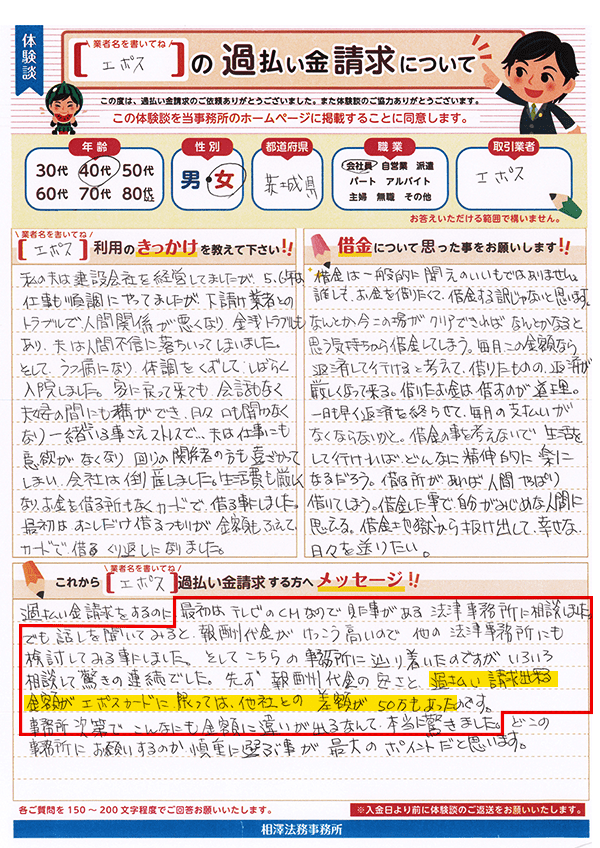 体験談
業者名を書いてね
[エポス]の過払い金請求について
この度は、過払い金請求のご依頼ありがとうございました。また体験談のご協力ありがとうございます。
この体験談を当事務所のホームページに掲載することに同意します。
年齢
30代 40代 50代
60代 70代 80代
性別
男・女
都道府県
茨城県
職業
会社員 自営業 派遣
パート アルバイト
主婦 無職 その他
取引業者
エポス
お答えいただける範囲で構いません。
業者名を書いてね
[エポス]利用のきっかけを教えて下さい!!
私の夫は建設会社を経営してましたが、5、6年は
仕事も順調にやってましたが下請け業者との
トラブルで、人間関係が悪くなり、金銭トラブルも
あり、夫は人間不信に落ちいってしまいました。
そして、うつ病になり、体調をくずして、しばらく
入院しました。家に戻って来ても会話もなく
夫婦の間にも溝ができ、日々口も聞かなく
なり一緒にいる事さえストレスで、夫は仕事にも
意欲がなくなり 回りの関係者の方も遠ざかって
しまい、会社は倒産しました。生活費も厳しく
なりお金を借る所もなくカードで借る事にしました。
最初は少しだけ借るつもりが金額もふえて、
カードで借るくり返しになりました。
借金について思った事をお願いします!!
借金は一般的に聞えのいいものではありません。
誰しも、お金を借りたくて、借金する訳じゃないと思います。
なんとか、今この場がクリアできればなんとかなると
思う気持ちから借金してしまう。毎月この金額なら
返済して行けると考えて、借りたものの、返済が
厳しくなって来る。借りたお金は借すのが道理。
一日も早く返済を終らせて、毎月の支払いが
なくならないかと。借金の事を考えないで生活を
して行ければ、どんなに精神的に楽に
なるだろう。借る所があれば人間やはり
借りてしまう。借金した事で、自分がみじめな人間に
思える。借金地獄から抜け出して、幸せな
日々を送りたい。
業者名を書いてね
これから[エポス]過払い金請求する方へメッセージ!!
過払い金請求をするのに 最初はテレビのCMなりで見た事がある法律事務所に相談しました。
でも話しを聞いてみると、報酬代金がけっこう高いので他の法律事務所にも
検討してみる事にしました。そしてこちらの事務所に辿り着いたのですがいろいろ
相談して驚きの連続でした。先ず報酬代金の安さと、過払い請求出来る
金額がエポスカードに限っては、他社との差額が50万もあったのです。
事務所次第でこんなにも金額に違いが出るなんて、本当に驚きました。どこの
事務所にお願いするのか慎重に選ぶ事が最大のポイントだと思います。
各ご質問を150~200文字程度でご回答お願いいたします。
※入金日より前に体験談のご返送をお願いいたします。
相澤法務事務所